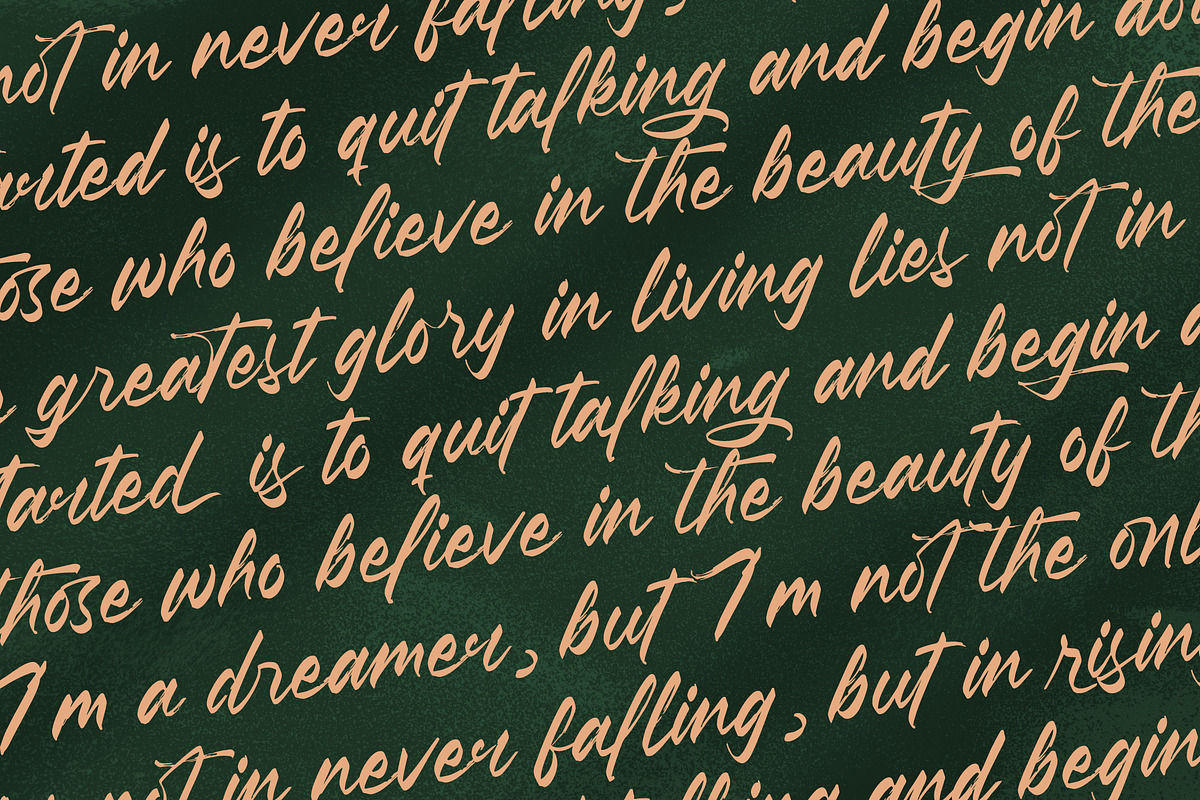 not in never falling,
arted is to quit talking and begin do
ose who believe in the beauty of the
greatest glory in living lies not in
tarted is to quit talking and begin
those who believe in the beauty of th
I'm a dreamer, but I'm not the onl
not in never falling, but in rising
talking and begin